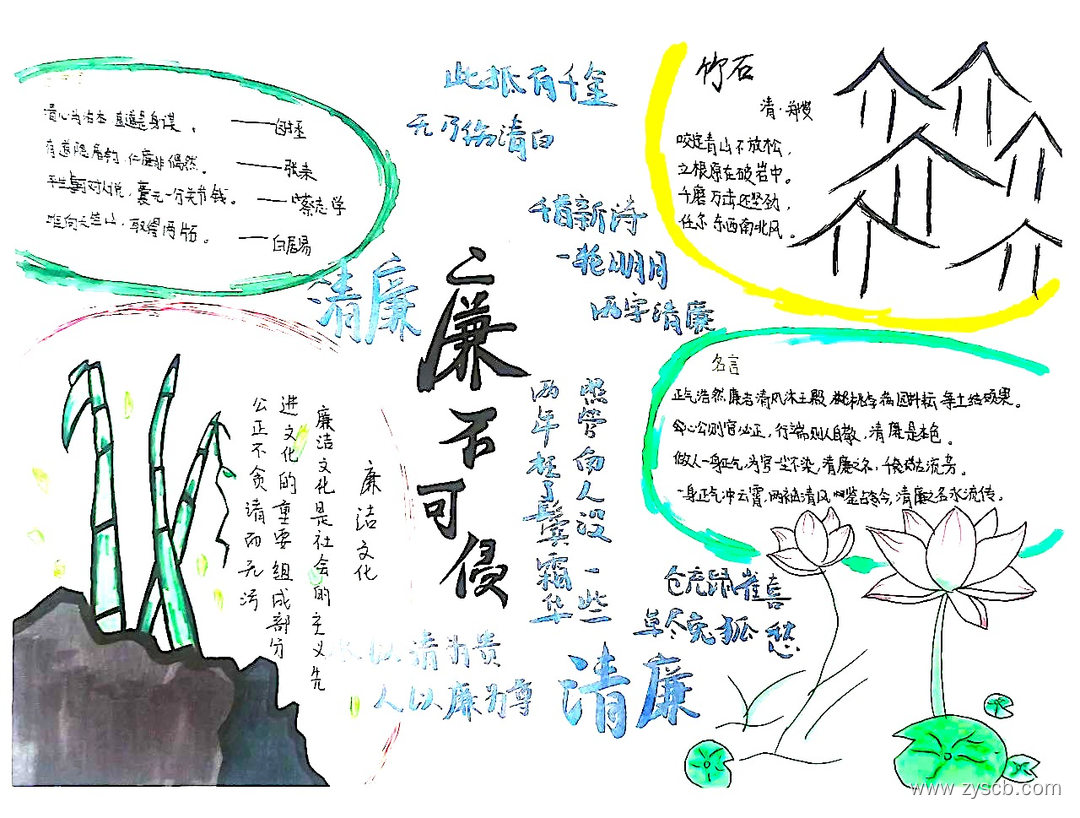 清心为治本 直道是身谋。——包拯
有道隐屠钓,仁廉非偶然。——张耒
囊无一分关节钱。——蔡志学
唯向天竺山,取得两片石。——白居易
此抵有千金
无乃伤清白
千首新诗
一轮明月
两字清廉
竹石
清·郑燮
咬定青山不放松,
立根原在破岩中。
千磨万击还坚劲,
任尔东西南北风。
清廉
廉不可侵
照管向人没一些
两年枉了鬓霜华
名言
正气浩然廉者清风沐玉殿
公则官必正,行端则人自敬,清廉是本色。
做人一身正气,为官一尘不染,清廉之
一身正气冲云霄,两袖清风鉴古今,清廉之名永流传。
廉洁文化
廉洁文化是社会的主义先
进文化的重要组成部分
公正不贪清而无污
仓充鼠雀喜
草尽兔狐愁
水以清为贵
人以廉为尊
清廉
www.zyscb.com